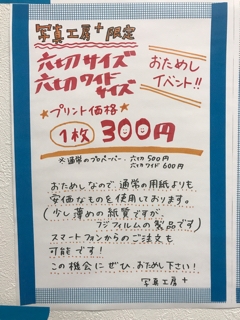 写真工房+ 限定
六切サイズ
六切ワイド
サイズ
おためし
イベント!!
★プリント価格★
1枚 300円
※通常のプロペーパー 六切 500円
六切ワイド 600円
おためしなので、通常の用紙よりも
安価なものを使用しております。
(少し薄めの紙質ですが、
フジフィルムの製品です)
スマートフォンからのご注文も
可能です!
この機会にぜひ、おためし下さい!
写真工房+